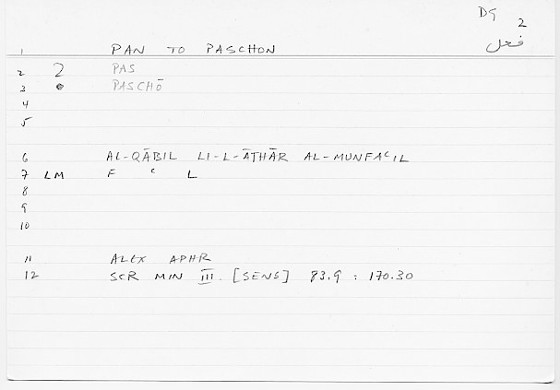 DG 2
1 PAN TO PASCHON فعل
2 2 PAS
3 • PASCHŌ
4
5
6 AL-QĀBIL LI-L-ĀTHĀR AL-MUNFAᶜIL
7 LM F ᶜ L
8
9
10
11 ALEX APHR
12 SCR MIN III. [SENS] 83.9 : 170.30